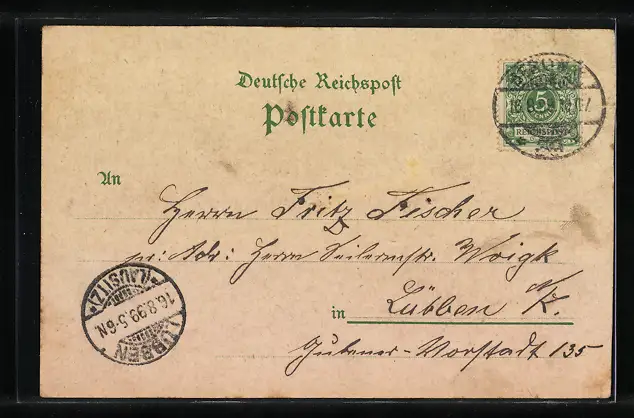 Deutsche Reichspost
Postkarte
5
REICHSPOST
An
Herrn Fritz Fischer
pr. Adr: Herrn Seilermstr. Woigk
in Lübben N/L.
Gubener-Vorstadt 135
LÜBBEN
(LAUSITZ)
16.8.99.5-6N.